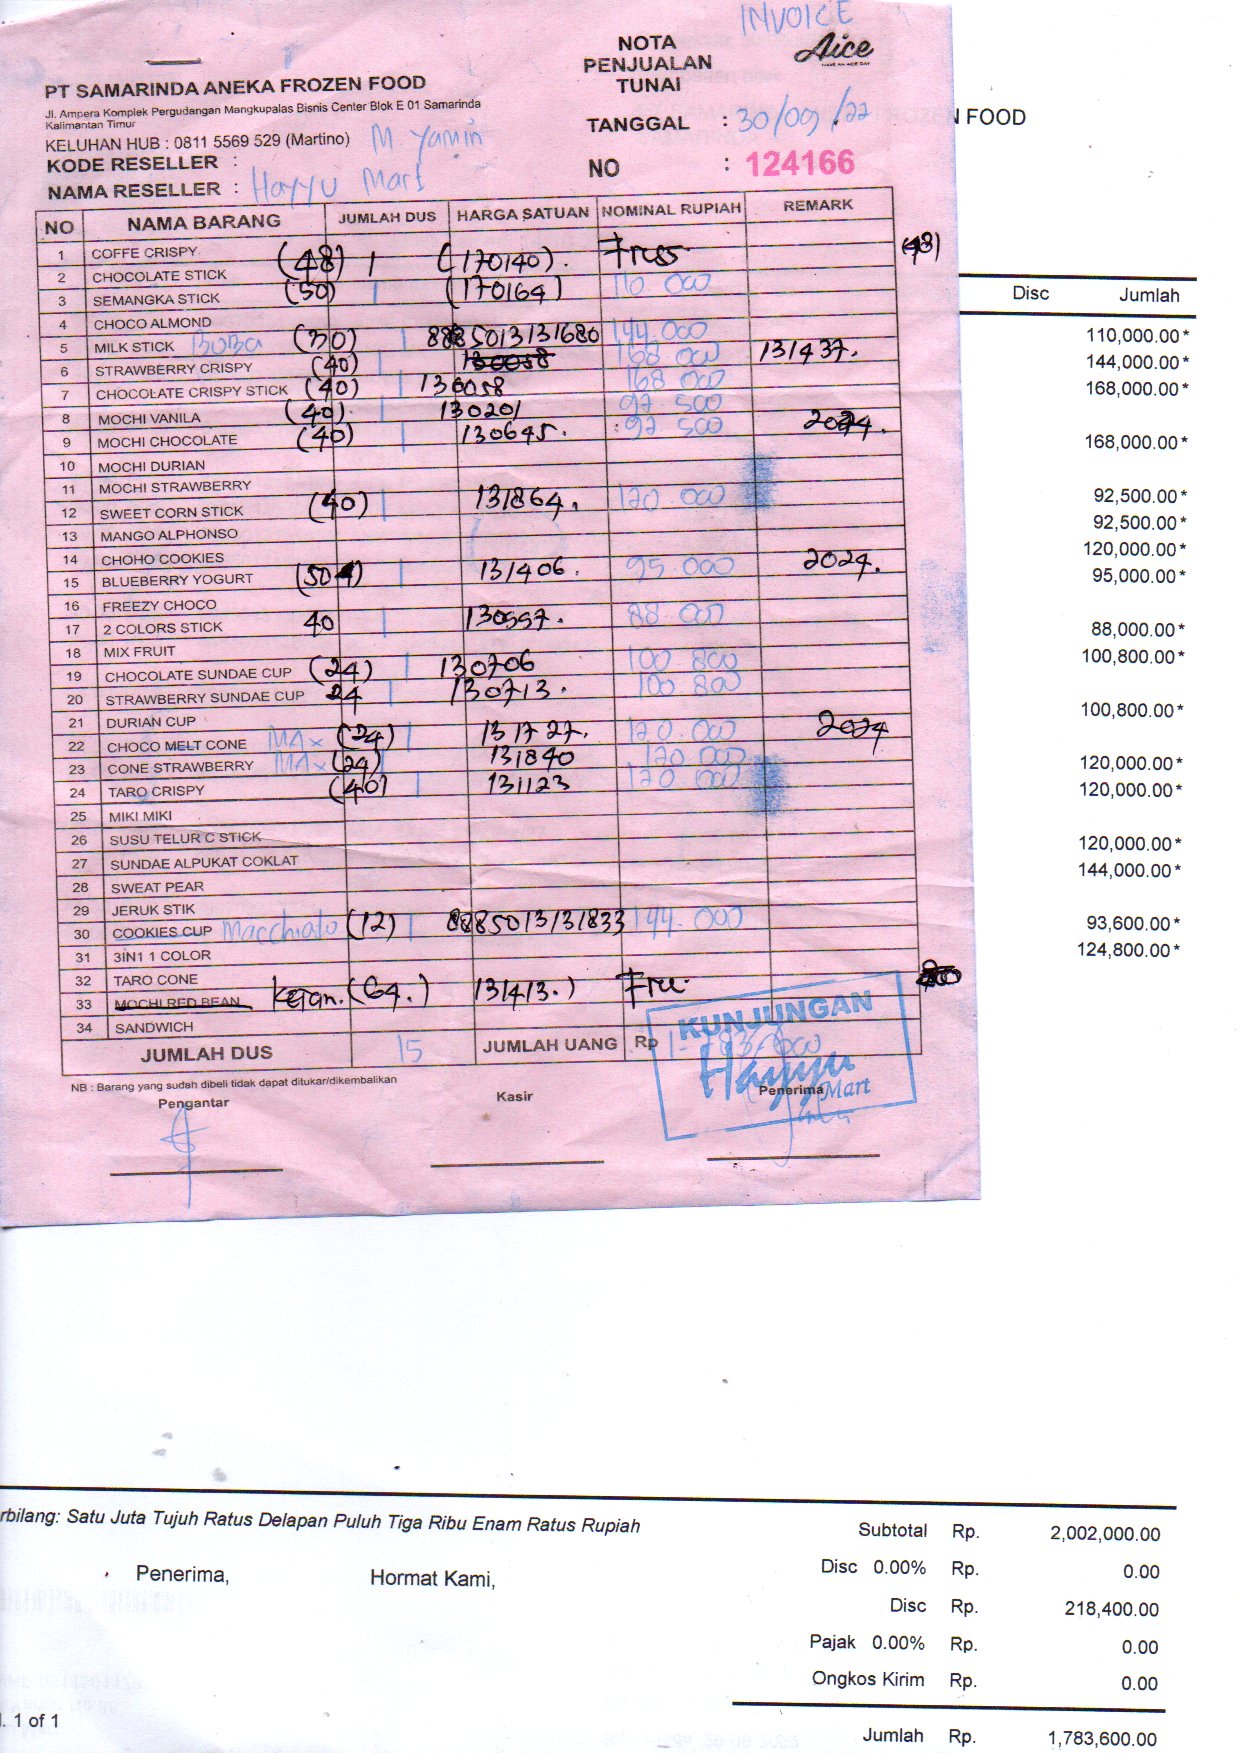 INVOICE
NOTA
PENJUALAN
TUNAI
Aice
HAVE AN AICE DAY
PT SAMARINDA ANEKA FROZEN FOOD
Jl. Ampera Komplek Pergudangan Mangkupalas Bisnis Center Blok E 01 Samarinda
Kalimantan Timur
KELUHAN HUB : 0811 5569 529 (Martino) M. Yamin
KODE RESELLER :
NAMA RESELLER : Hayyu Mart
TANGGAL : 30/09/22
NO : 124166
N FOOD
NO NAMA BARANG JUMLAH DUS HARGA SATUAN NOMINAL RUPIAH REMARK
1 COFFE CRISPY (48) 1 (170140). Free (48)
2 CHOCOLATE STICK
3 SEMANGKA STICK (50) 1 (170164) 110 000
4 CHOCO ALMOND
5 MILK STICK BOBA (30) 1 8885013131680 144.000
6 STRAWBERRY CRISPY (40) 168 000 131437.
7 CHOCOLATE CRISPY STICK (40) 1 130058 168 000
8 MOCHI VANILA (40). 1 130201 92 500
9 MOCHI CHOCOLATE (40) 1 130645. 92 500 2024.
10 MOCHI DURIAN
11 MOCHI STRAWBERRY
12 SWEET CORN STICK (40) 1 131864. 120.000
13 MANGO ALPHONSO
14 CHOHO COOKIES
15 BLUEBERRY YOGURT (50) 1 131406. 95 000 2024.
16 FREEZY CHOCO
17 2 COLORS STICK 40 1 130997. 88 000
18 MIX FRUIT
19 CHOCOLATE SUNDAE CUP (24) 1 130706 100 800
20 STRAWBERRY SUNDAE CUP 24 1 130713. 100 800
21 DURIAN CUP
22 CHOCO MELT CONE MAx (24) 1 131727. 120.000 2024
23 CONE STRAWBERRY MAx (24) 131840 120 000
24 TARO CRISPY (40) 1 131123 120 000
25 MIKI MIKI
26 SUSU TELUR C STICK
27 SUNDAE ALPUKAT COKLAT
28 SWEAT PEAR
29 JERUK STIK
30 COOKIES CUP Macchiato (12) 1 8885013131833 144.000
31 3IN1 1 COLOR
32 TARO CONE
33 MOCHI RED BEAN Ketan. (64.) 131413.) Free.
34 SANDWICH
JUMLAH DUS 15 JUMLAH UANG Rp 1.783.600
NB : Barang yang sudah dibeli tidak dapat ditukar/dikembalikan
Pengantar Kasir Penerima
KUNJUNGAN
Hayyu
Mart
Disc Jumlah
110,000.00*
144,000.00*
168,000.00*
168,000.00*
92,500.00*
92,500.00*
120,000.00*
95,000.00*
88,000.00*
100,800.00*
100,800.00*
120,000.00*
120,000.00*
120,000.00*
144,000.00*
93,600.00*
124,800.00*
rbilang: Satu Juta Tujuh Ratus Delapan Puluh Tiga Ribu Enam Ratus Rupiah
Penerima, Hormat Kami,
Subtotal Rp. 2,002,000.00
Disc 0.00% Rp. 0.00
Disc Rp. 218,400.00
Pajak 0.00% Rp. 0.00
Ongkos Kirim Rp. 0.00
Jumlah Rp. 1,783,600.00
l. 1 of 1